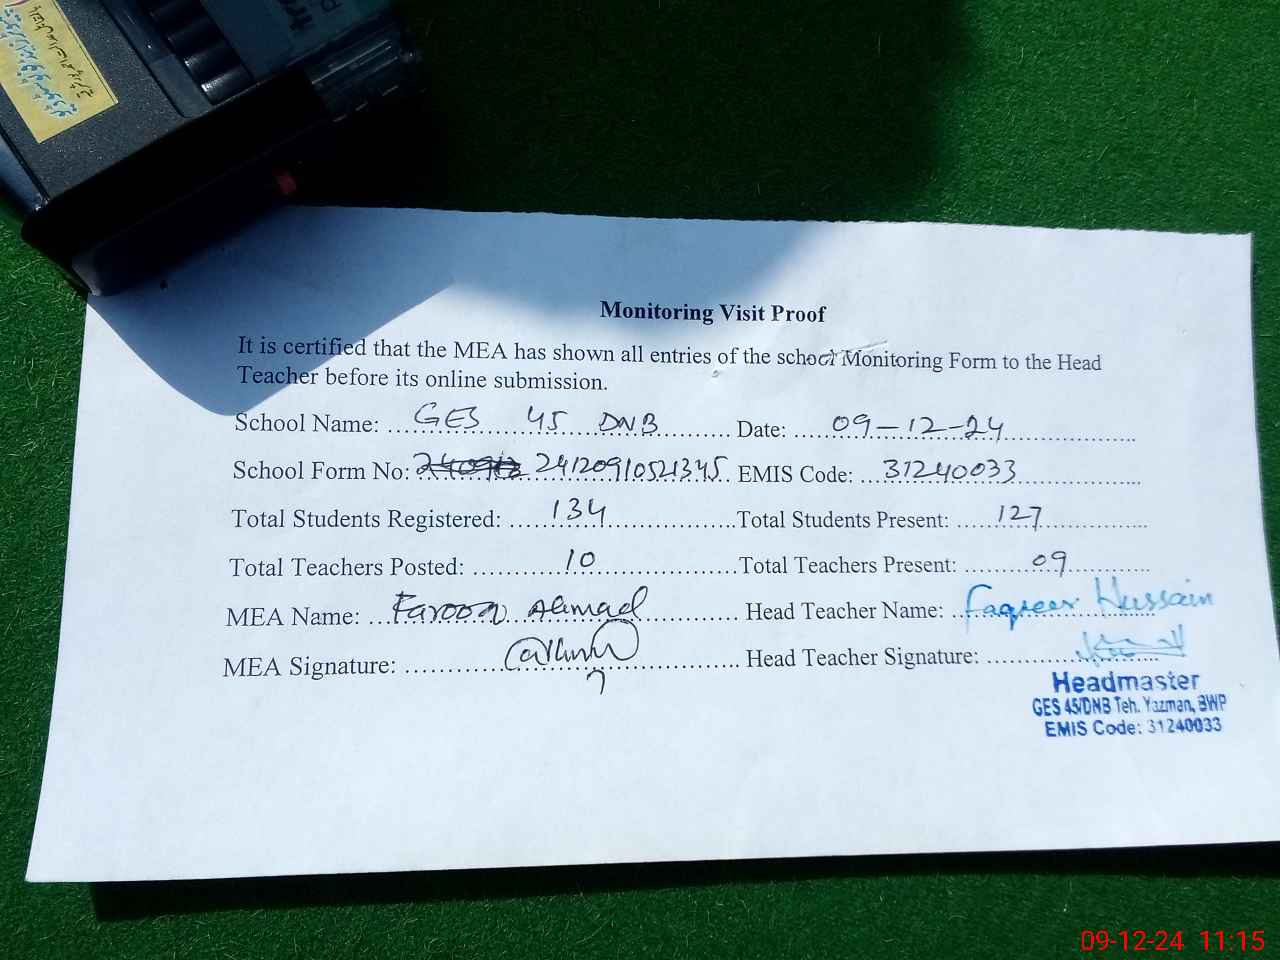 Monitoring Visit Proof
It is certified that the MEA has shown all entries of the school Monitoring Form to the Head
Teacher before its online submission.
School Name: GES 45 DNB Date: 09-12-24
School Form No: 24120910521345 EMIS Code: 31240033
Total Students Registered: 134 Total Students Present: 127
Total Teachers Posted: 10 Total Teachers Present: 09
MEA Name: Farooq Ahmad Head Teacher Name: Faqeer Hussain
MEA Signature: Head Teacher Signature:
Headmaster
GES 45/DNB Teh. Yazman, BWP
EMIS Code: 31240033
09-12-24 11:15